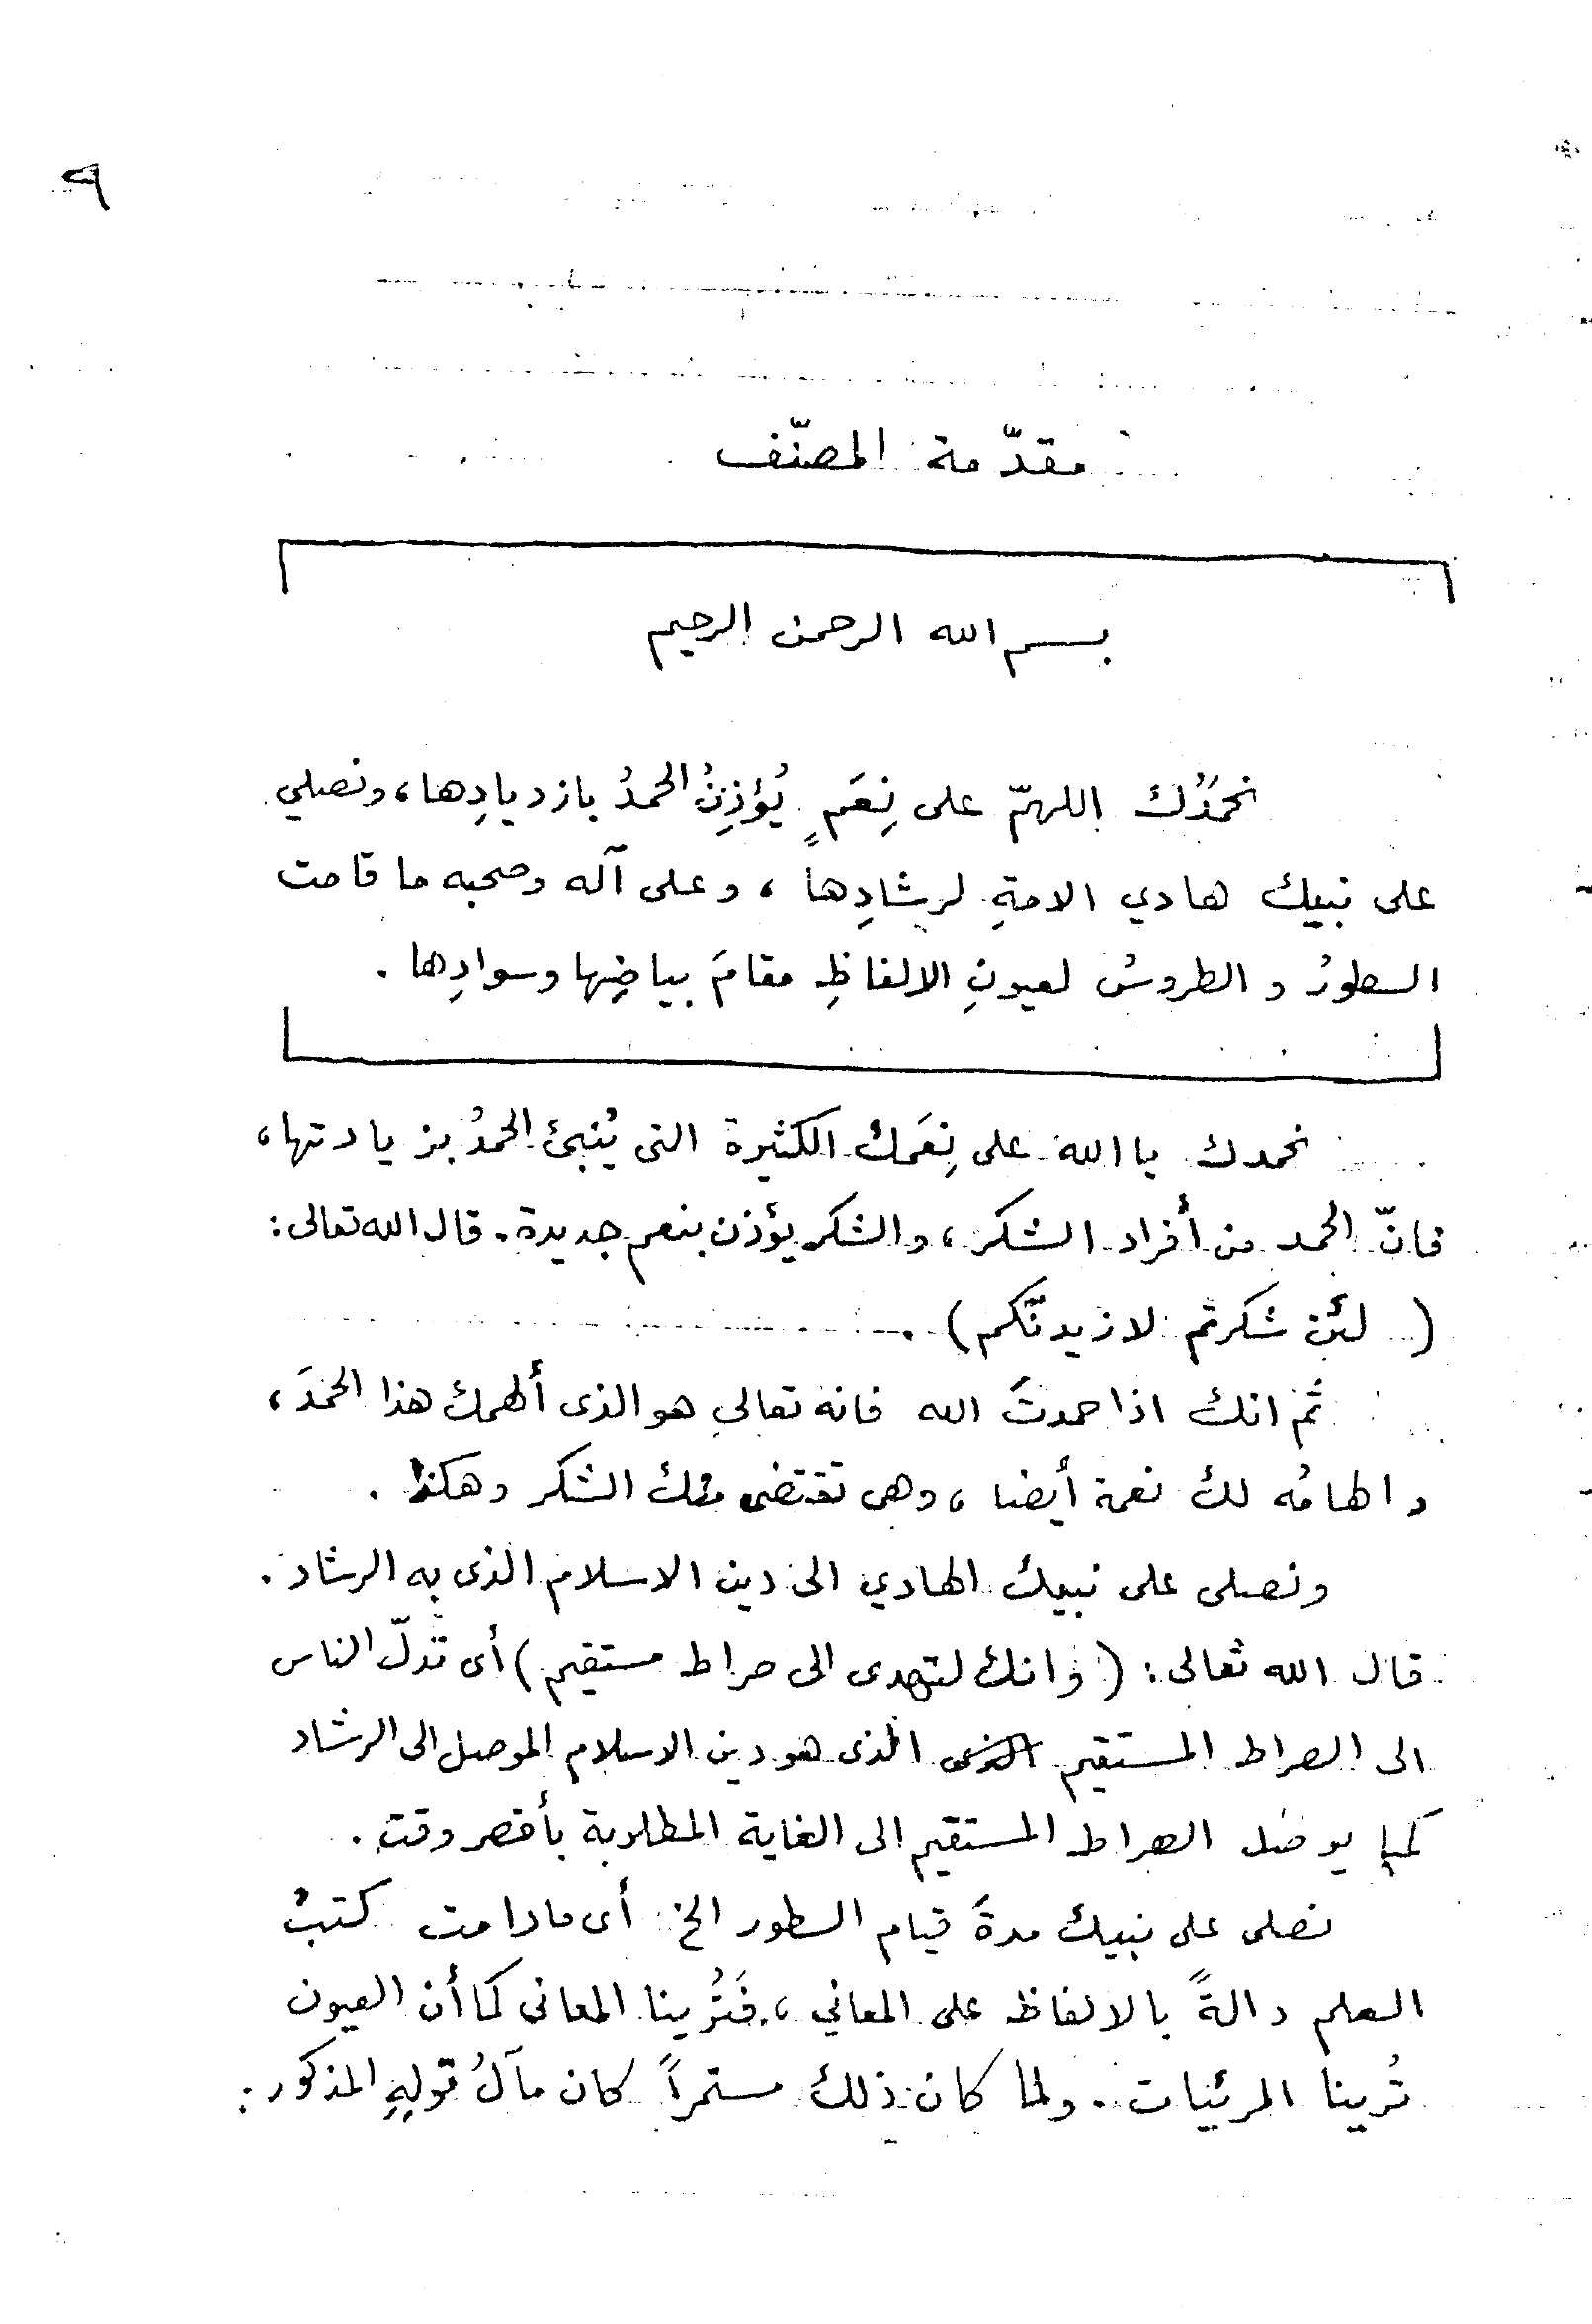 ٩
مقدّمة المصنّف
بسم الله الرحمن الرحيم
نحمَدُك اللهمّ على نِعَمٍ يُؤذِنُ الحمدُ بازديادِها، ونصلي
على نبيك هادي الامةِ لرشادِها، وعلى آله وصحبه ما قامت
السطورُ والطروسُ لعيونِ الالفاظِ مقامَ بياضِها وسوادِها.
نحمدك ياالله على نِعَمك الكثيرة التى يُنبئ الحمدُ بزيادتها،
فانّ الحمد من أفراد الشكر، والشكر يؤذن بنعم جديدة. قال الله تعالى:
(لئن شكرتم لازيدنّكم).
ثم انك اذا حمدتَ الله فانه تعالى هو الذى ألهمك هذا الحمدَ،
والهامُه لك نعمة أيضا، وهى تقتضى منك الشكر وهكذا.
ونصلى على نبيك الهادي الى دين الاسلام الذى به الرشاد.
قال الله تعالى: (وانك لتهدى الى صراط مستقيم) أى تدلّ الناس
الى الصراط المستقيم الذى هو دين الاسلام الموصل الى الرشاد
كما يوصل الصراط المستقيم الى الغاية المطلوبة بأقصر وقت.
نصلى على نبيك مدةَ قيام السطور الخ أى مادامت كتبُ
العلم دالةً بالالفاظ على المعاني، فَتُرينا المعانى كما أن العيون
تُرينا المرئيات. ولما كان ذلك مستمراً كان مآلُ قولِهِ المذكور: